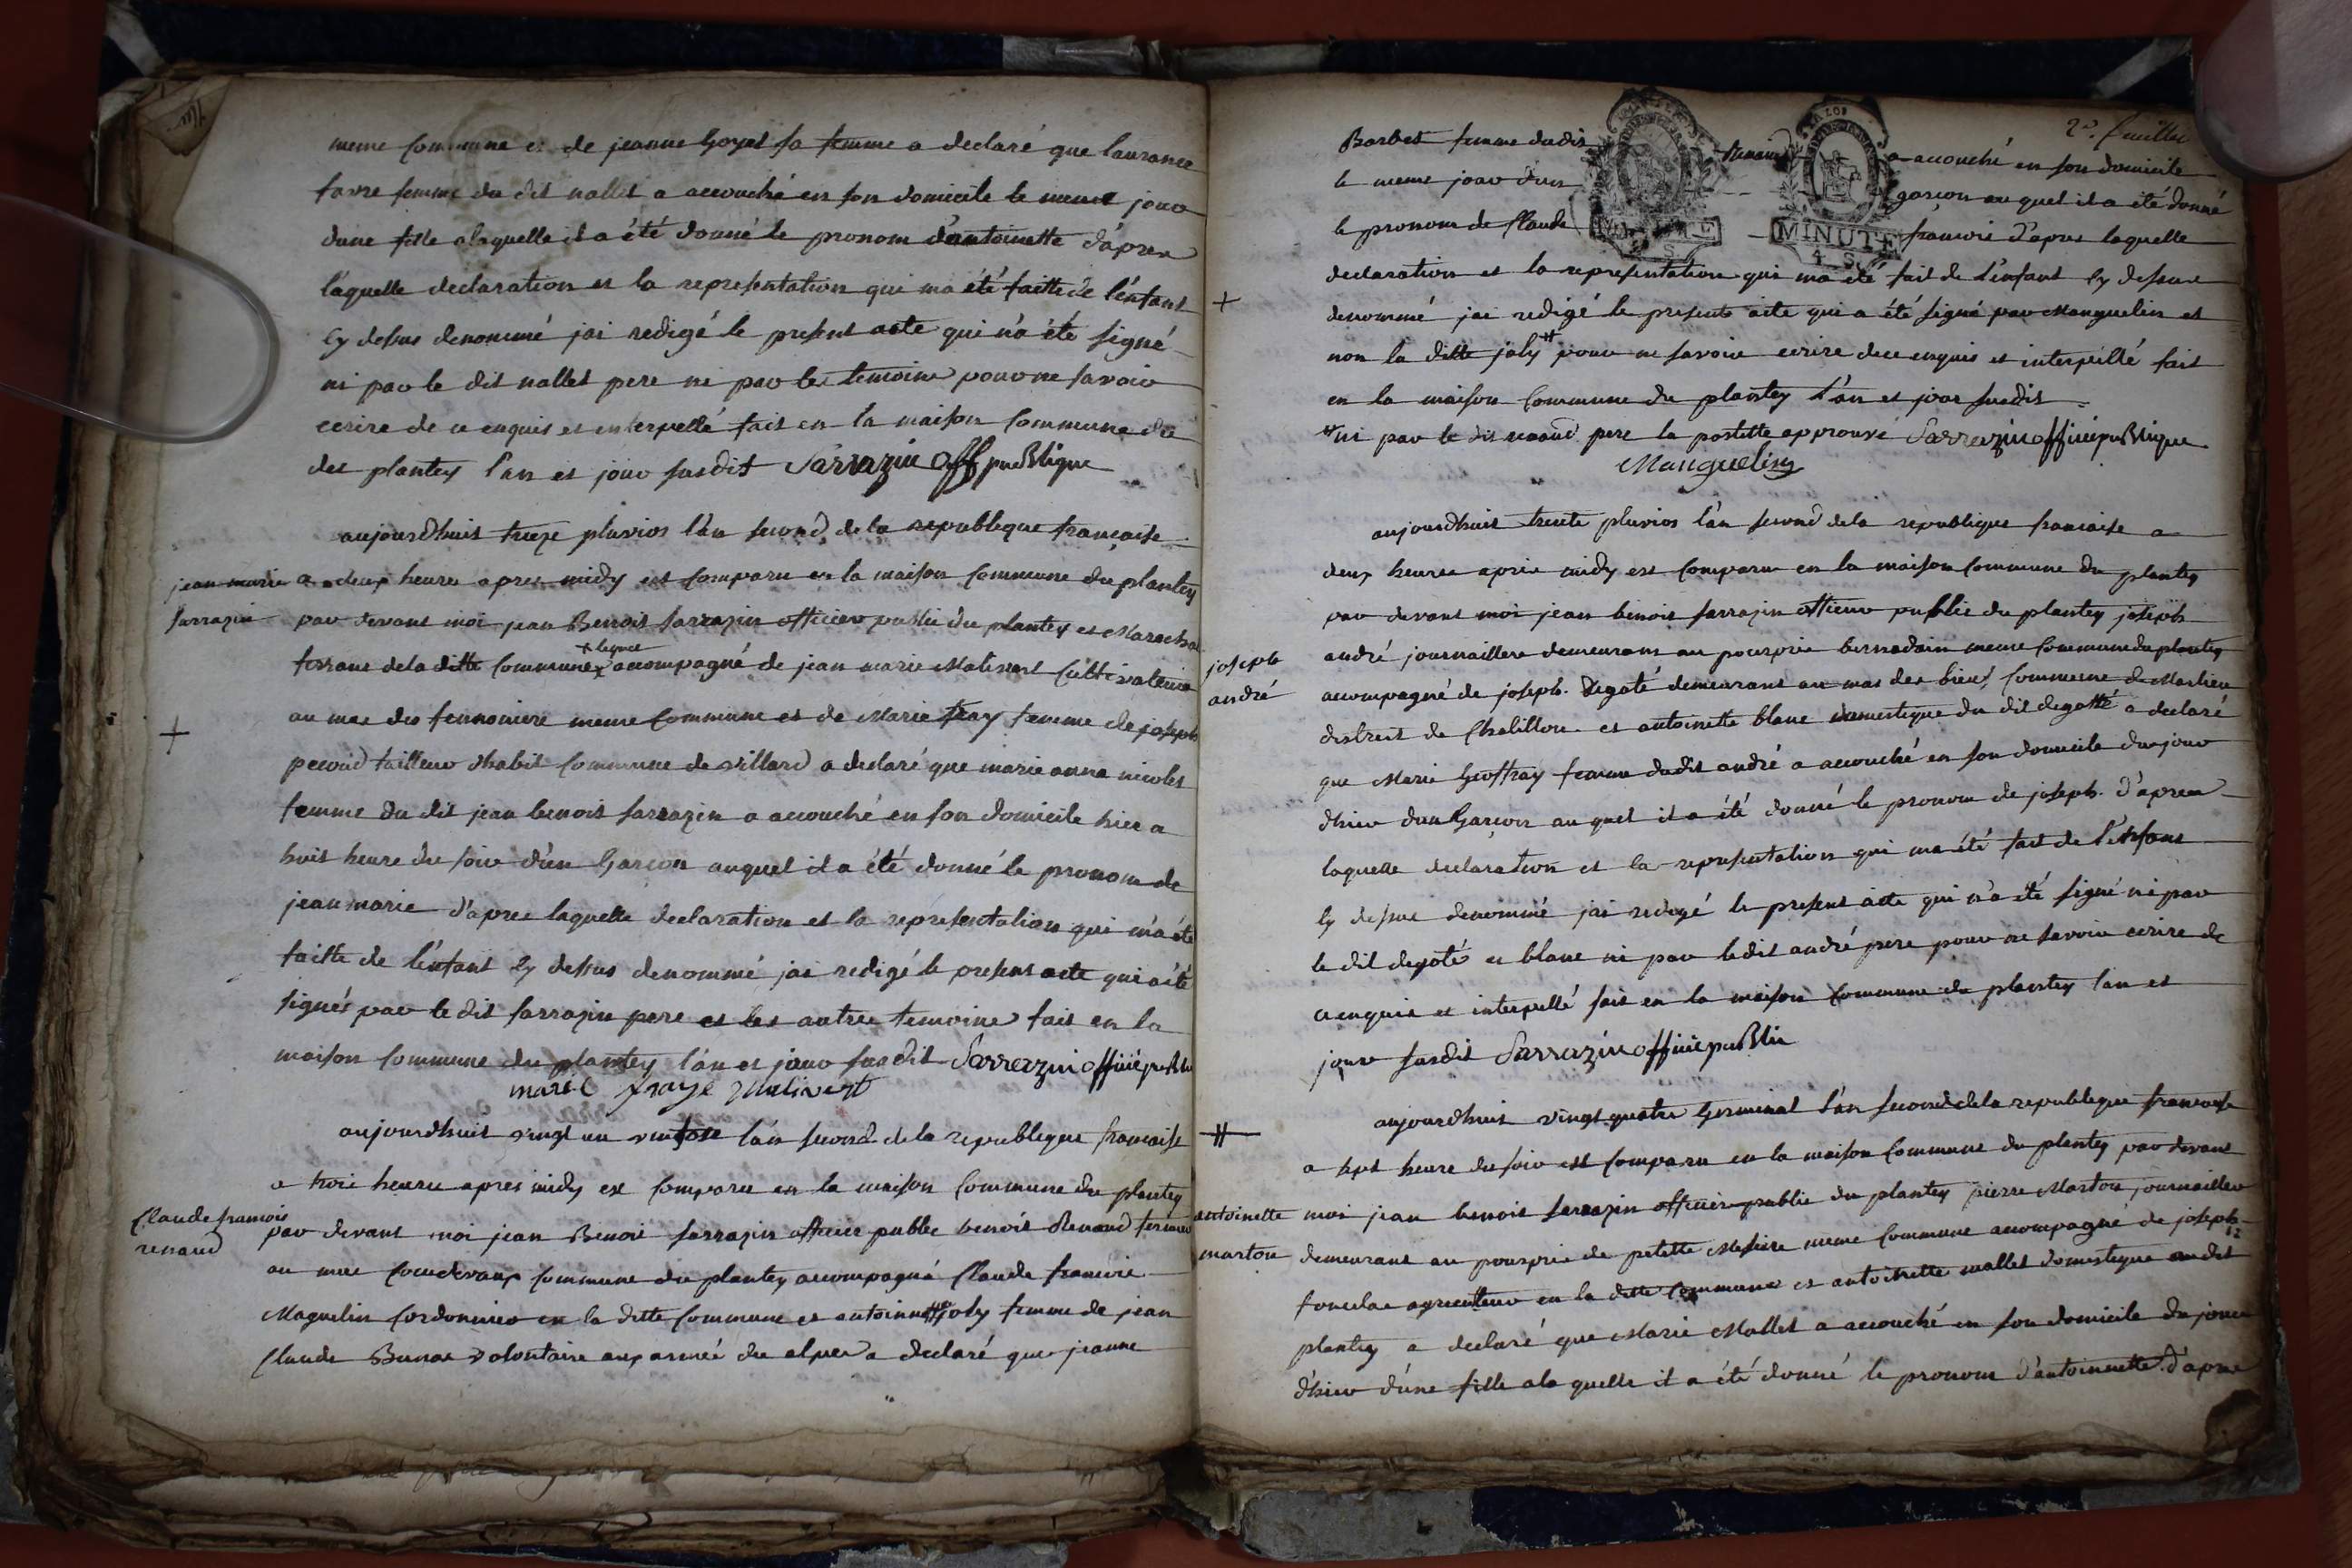 meme Commune et de jeanne Goyet sa femme a declaré que laurance
favre femme du dit nallet a accouché en son domicile le meme jour
dune fille alaquelle il a été donné le pronom d'antoinette d'apres
laquelle declaration et la representation qui ma été faitte de l'enfant
Cy dessus denommé jai redigé le present acte qui n'a été signé
ni par le dit nallet pere ni par les temoins pour ne savoir
ecrire de ce enquis et interpellé fait en la maison Commune du
des plantey l'an et jour susdit Sarrazin Off puBlique
aujourdhuit treize pluvios l'an second de la republeque francaise
jean marie
sarrazin
a deux heures apres midy est Comparu en la maison Commune du plantey
par devant moi jean Benoit sarrazin officier public du plantey et Marechal
ferrant de la ditte Commune accompagné de jean marie Malivert Cultivateur
+ lequel
au mas des fennoniere meme Commune et de Marie fray femme de joseph
pecoud tailleur dhabit Commune de villard a declaré que marie anne nicolet
femme du dit jean benoit sarrazin a accouché en son domicile hier a
huit heure du soir d'un Garcon auquel il a été donné le pronom de
jean marie d'apres laquelle declaration et la representation qui m'a été
faitte de l'enfant Cy dessus denommé jai redigé le present acte qui a été
signés par le dit sarrazin pere et les autres temoins fait en la
maison Commune du plantey l'an et jour susdit Sarrazin officié puBlic
marie fraye Malivert
aujourdhuit vingt un ventose l'an second de la republeque francaise
a trois heures apres midy est Comparu en la maison Commune du plantey
Claude francois
renaud
par devant moi jean Benoit sarrazin officier public benoit Renaud fermier
au mas Commune du plantey accompagné Claude francois
Maguelin Cordonnier en la ditte Commune et antoinette joly femme de jean
Claude volontaire aux armée des alpes a declaré que jeanne
2e. feuillet
Barbet femme dudit Renaud a accouché en son domicile
le meme jour d'un garcon au quel il a été donné
le pronom de Claude francois d'apres laquelle
MINUTE
4 S
declaration et la representation qui ma été fait de l'enfant Cy dessus
denommé jai redigé le present acte qui a été signé par Manguelin et
non la ditte joly # pour ne savoir ecrire de ce enquis et interpellé fait
en la maison Commune du plantey l'an et jour susdit
# ni par le dit renaud pere la postille approuvé Sarrazin officié puBlique
Manguelin
aujourdhuit trente pluvios l'an second de la republique francaise a
deux heures apries midy est Comparu en la maison Commune du plantey
par devant moi jean benoit sarrazin officier public du plantey joseph
joseph
andré
andré journaillere demeurant au pourprie bernadain meme Commune du plantey
accompagné de joseph degoté demeurant au mas des bieux Commune de Marlieu
distreit de Chatillon et antoinette blanc domestique du dit degotté a declaré
que Marie Geoffray femme dudit andré a accouché en son domicile du jour
dhier d'un Garcon au quel il a été donné le pronom de joseph d'apres
laquelle declaration et la representation qui ma été fait de l'enfant
Cy dessus denommé jai redigé le present acte qui n'a été signé ni par
le dit degoté et blanc ni par ledit andré pere pour ne savoir ecrire de
ce enquis et interpellé fait en la maison Commune du plantey l'an et
jour susdit Sarrazin officié puBlic
aujourdhuit vingt quatre Germinal l'an second de la republeque francaise
a sept heure du soir est Comparu en la maison Commune du plantey par devant
antoinette
marton
moi jean benoit sarrazin officier public du plantey pierre Marton journaillier
demeurant au pourprie de petitte Messire meme Commune accompagné de joseph
agriculteur en la ditte Commune et antoinette mallet domestique au dit
plantey a declaré que Marie Mallet a accouché en son domicile du jour
d'hier d'une fille ala quelle il a été donné le pronom d'antoinette d'apres